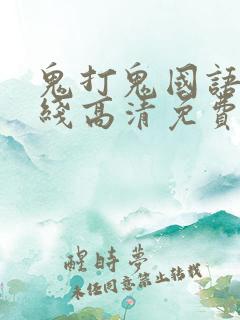 鬼打鬼國語
綫高清免費
醒時夢
未经同意禁止转载